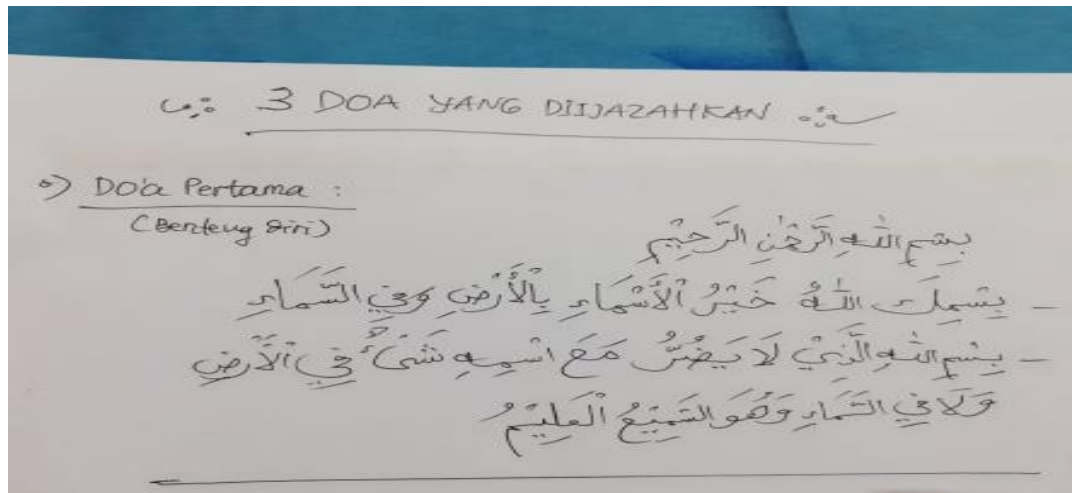 3 DOA YANG DIIJAZAHKAN
Do'a Pertama :
(Benteng Diri)
بِسْمِ اللهِ الرَّحْمٰنِ الرَّحِيْمِ
- بِسْمِكَ اللهُ خَيْرُ الْأَسْمَاءِ بِالْأَرْضِ وَفِي السَّمَاءِ
- بِسْمِ اللهِ الَّذِيْ لَا يَضُرُّ مَعَ اسْمِهِ شَيْءٌ فِي الْأَرْضِ
وَلَا فِي السَّمَاءِ وَهُوَ السَّمِيْعُ الْعَلِيْمُ